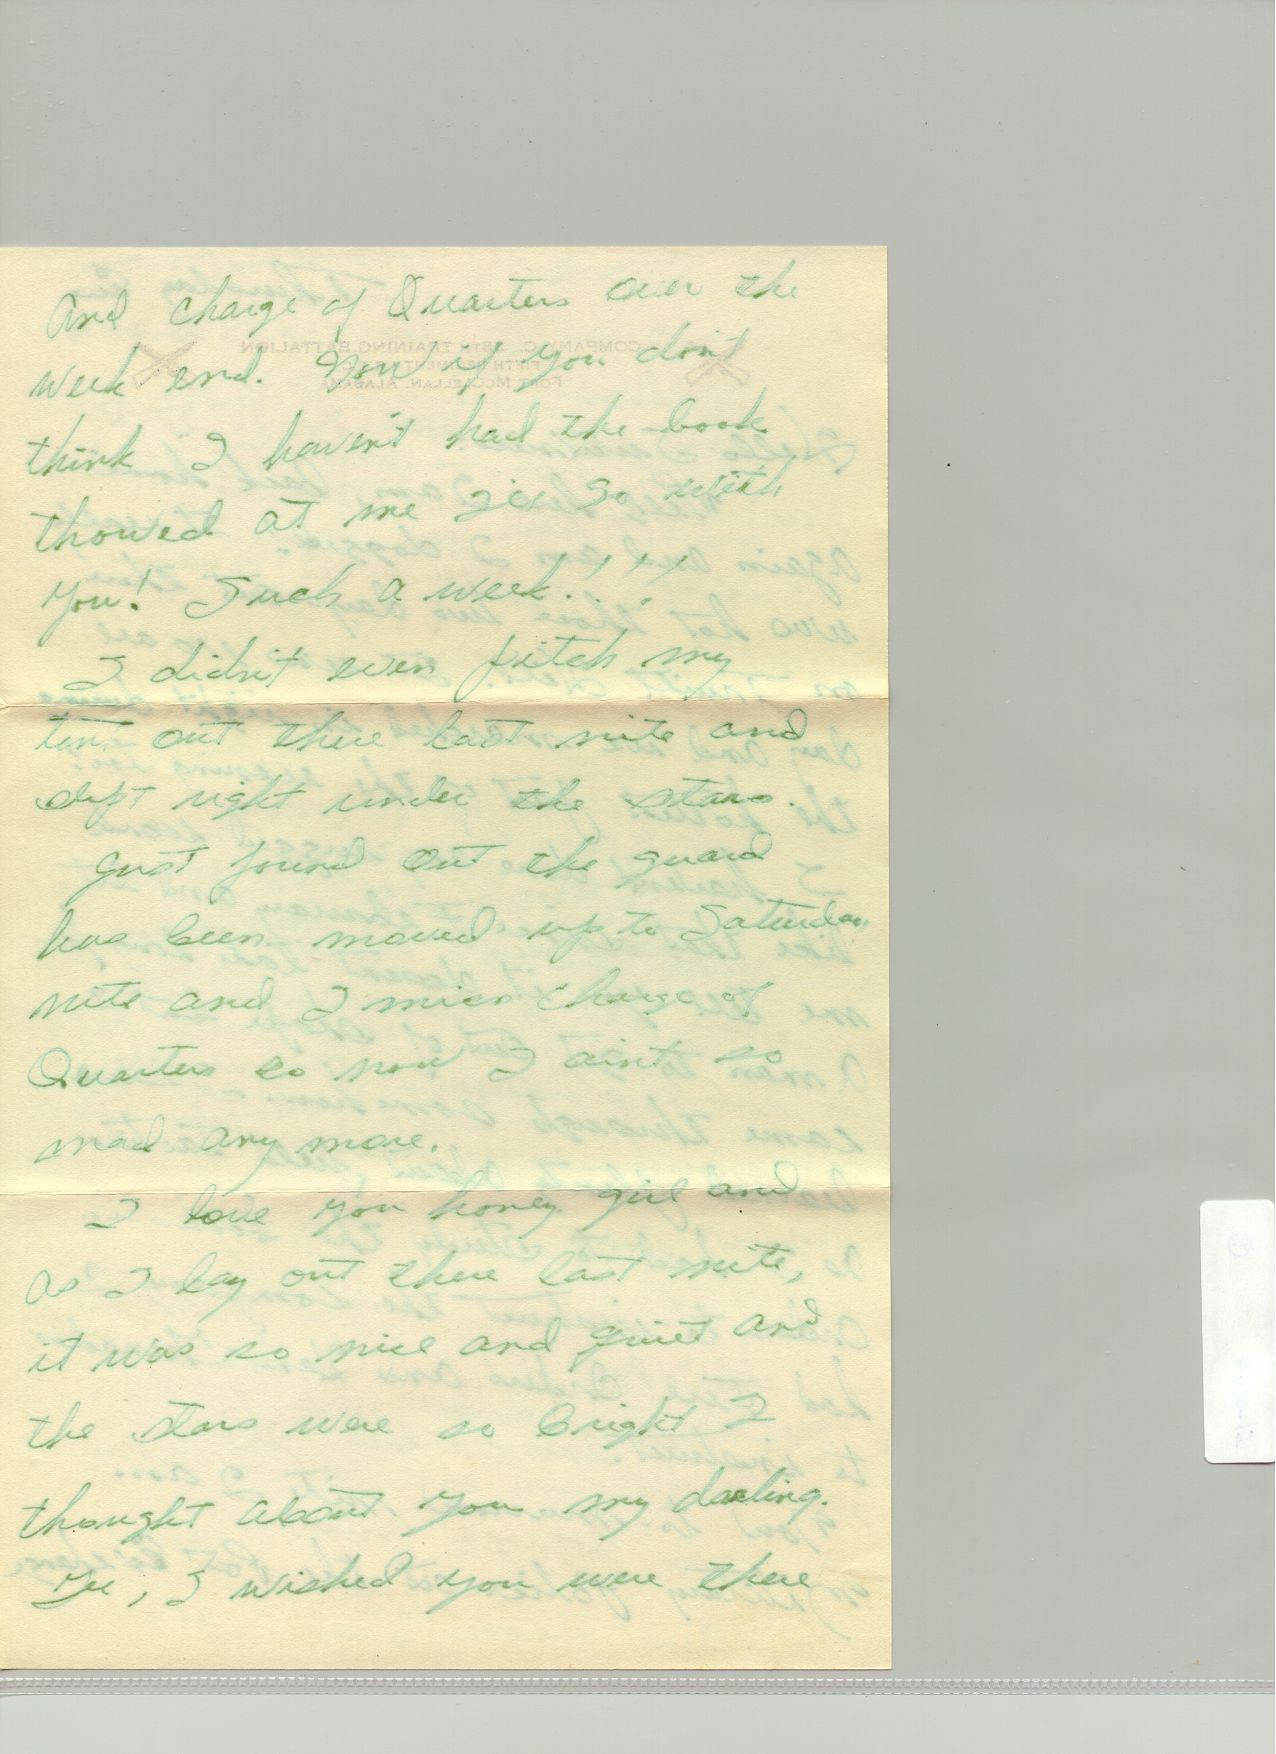 And charge of Quarters over the
week end. Now if you don't
think I haven't had the book
thowed at me I'll go with
you! Such a week!!!
I didn't even pitch my
tent out there last nite and
slept right under the stars.
Just found out the guard
has been moved up to Saturday
nite and I miss charge of
Quarters so now I aint so
mad any more.
I love you honey girl and
as I lay out there last nite,
it was so nice and quiet and
the stars were so bright I
thought about you my darling.
Yes, I wished you were there